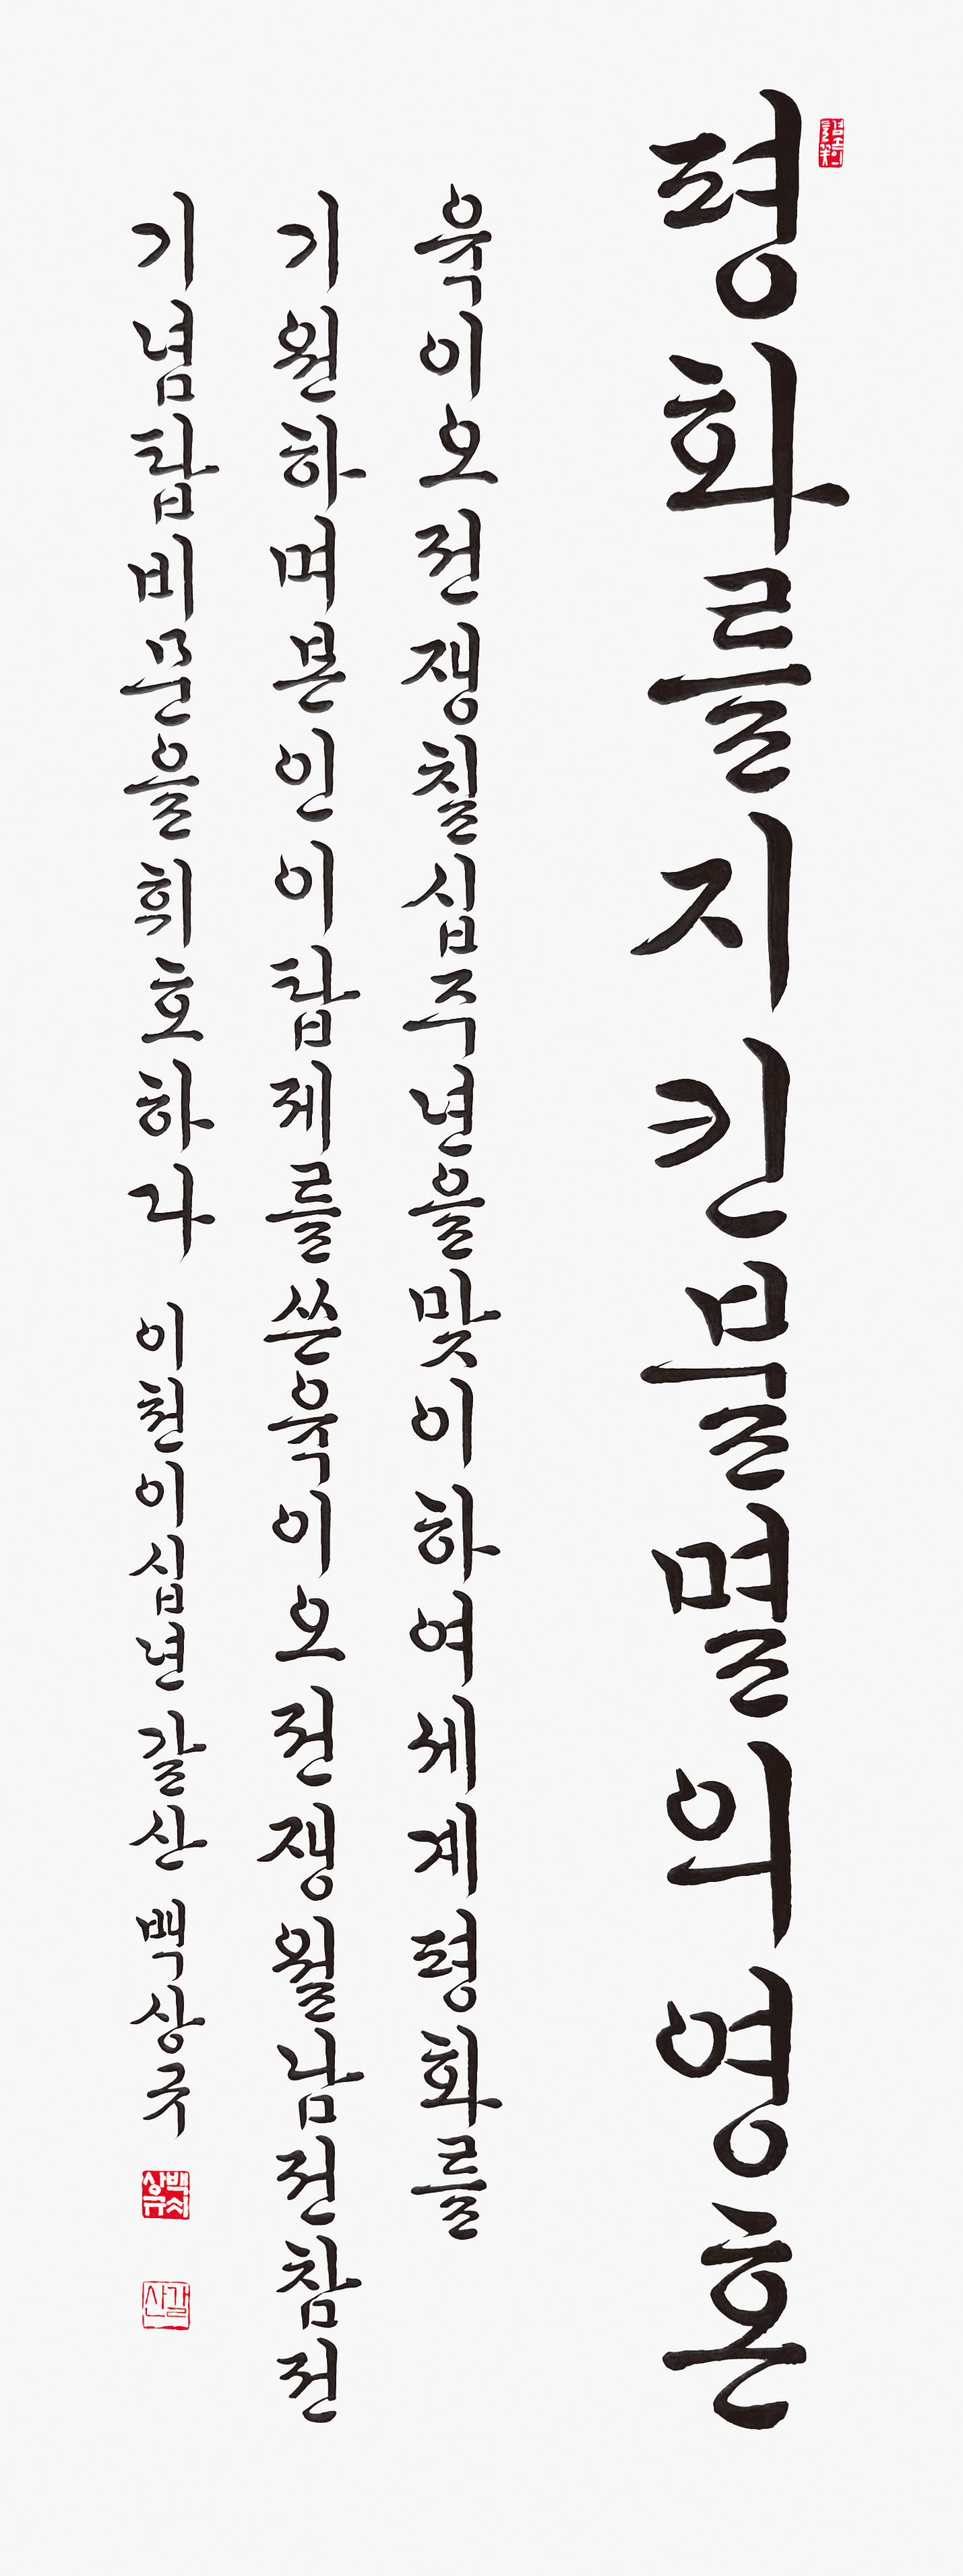 평화를지킨불멸의영혼
육이오전쟁칠십주년을맞이하여세계평화를
기원하며본인이탑제를쓴육이오전쟁월남전참전
기념탑비문을휘호하다 이천이십년 갈산 백상국
갈산